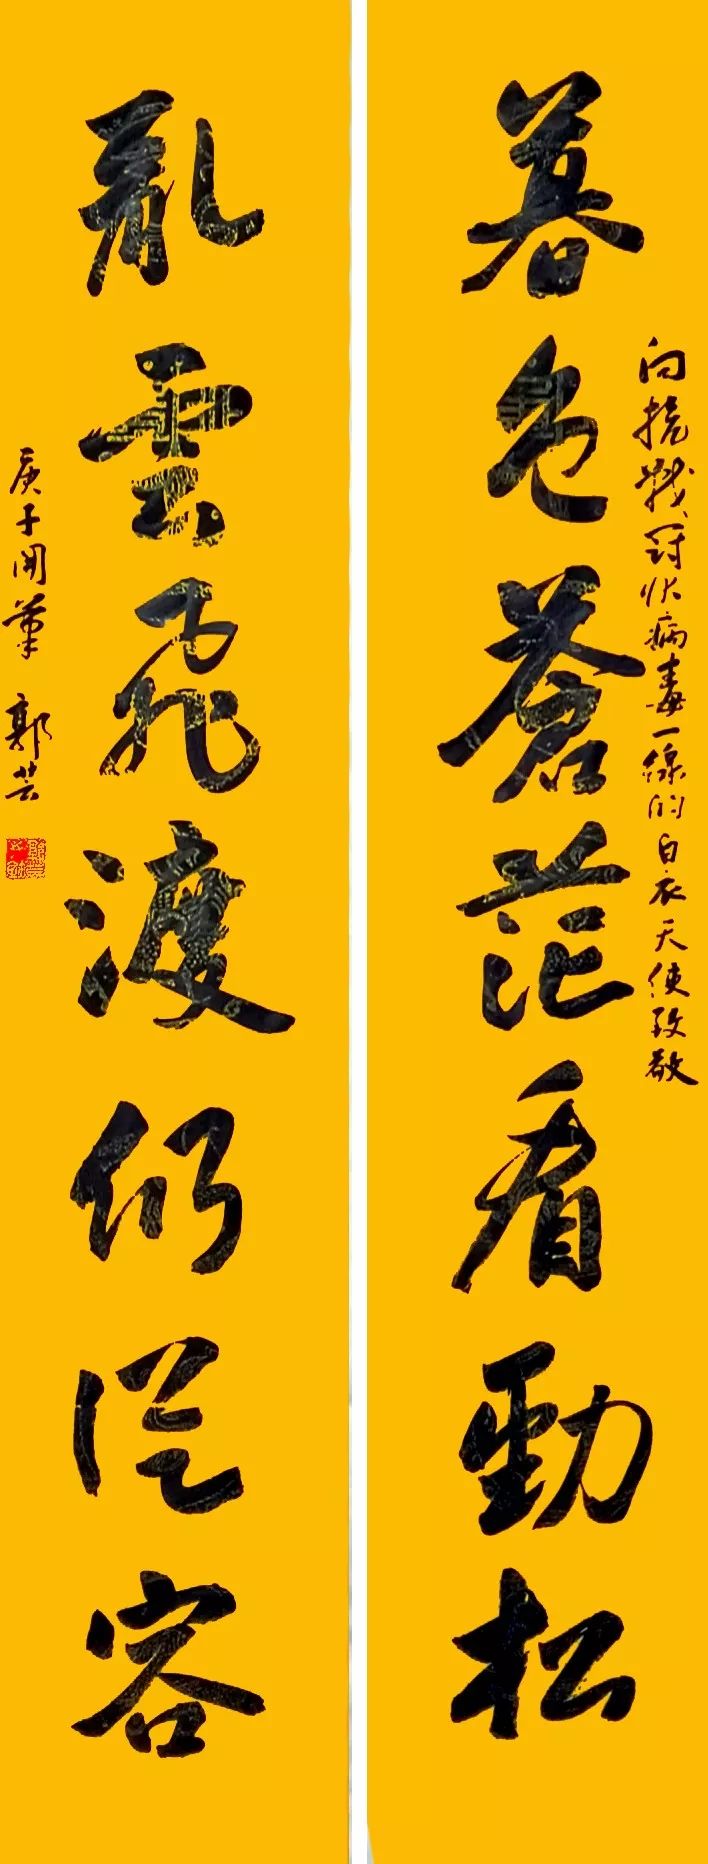 向抗戰冠状病毒一線的白衣天使致敬
暮色蒼茫看勁松
亂雲飛渡仍從容
庚子開筆 郭芸